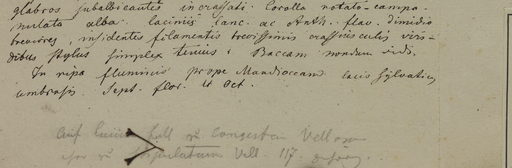 glabros subalbicantes incrassati. Corolla rotato-campa-
nulata alba. laciniis lanc. ac Anth. flav. dimidio
breviores, insidentes filamentis brevissimis crassiusculis viri-
dibus stylus simplex tenuis. Baccam nondum vidi.
In ripa fluminis prope Mandioccam locis sylvaticis
umbrosis Sept. flor. et Oct.
congesta Velloz
Vell. 117